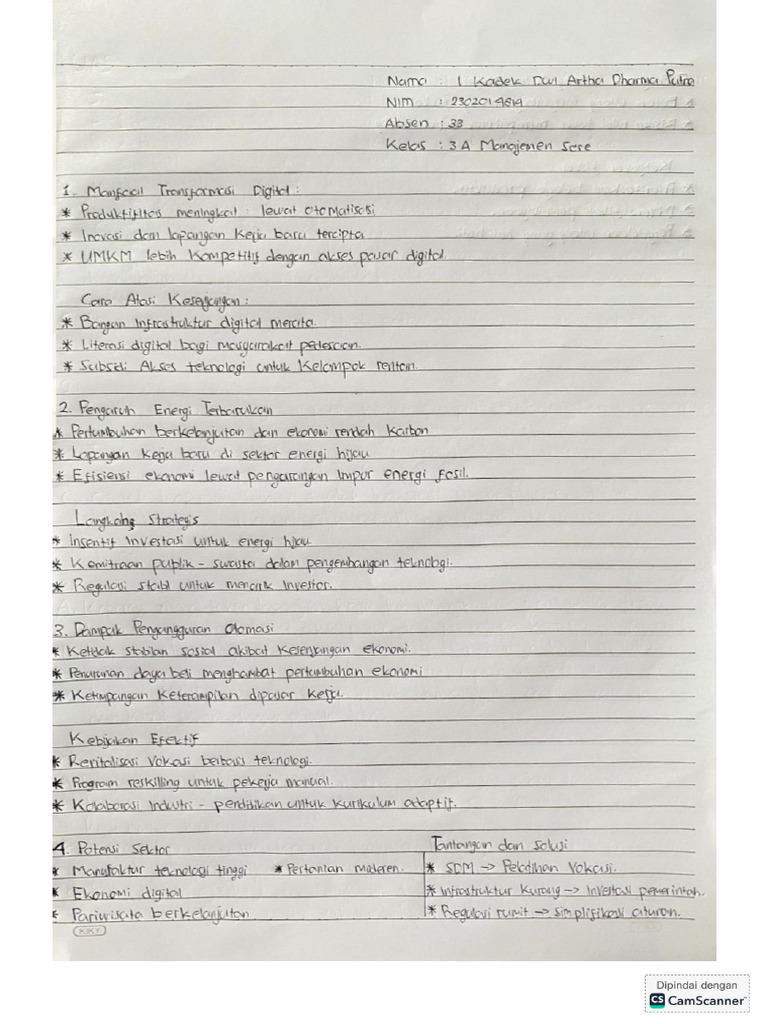 Nama : I Kadek Dwi Artha Dharma Putra
NIM : 2302014614
Absen : 33
Kelas : 3 A Manajemen Sore
1. Manfaat Transformasi Digital :
* Produktifitas meningkat : lewat otomatisasi
* Inovasi dan lapangan kerja baru tercipta
* UMKM lebih kompetitif dengan akses pasar digital.
Cara Atasi Kesenjangan :
* Bangun infrastruktur digital merata.
* Literasi digital bagi masyarakat pedesaan.
* Subsidi Akses teknologi untuk kelompok rentan.
2. Pengaruh Energi Terbarukan
* Pertumbuhan berkelanjutan dan ekonomi rendah karbon
* Lapangan kerja baru di sektor energi hijau
* Efisiensi ekonomi lewat pengurangan impor energi fosil.
Langkah Strategis
* Insentif Investasi untuk energi hijau
* Kemitraan publik - swasta dalam pengembangan teknologi.
* Regulasi stabil untuk menarik investor.
3. Dampak Pengangguran Otomasi
* Ketidak stabilan sosial akibat kesenjangan ekonomi.
* Penurunan daya beli menghambat pertumbuhan ekonomi
* Ketimpangan keterampilan dipasar kerja.
Kebijakan Efektif
* Revitalisasi Vokasi berbasis teknologi.
* Program reskilling untuk pekerja manual.
* Kolaborasi Industri - pendidikan untuk kurikulum adaptif.
4. Potensi Sektor
* Manufaktur teknologi tinggi * Pertanian moderen.
* Ekonomi digital
* Pariwisata berkelanjutan
Tantangan dan solusi
* SDM → Pelatihan Vokasi.
* Infrastruktur Kurang → Investasi pemerintah.
* Regulasi rumit → simplifikasi aturan.
KIKY
Dipindai dengan
CS CamScanner